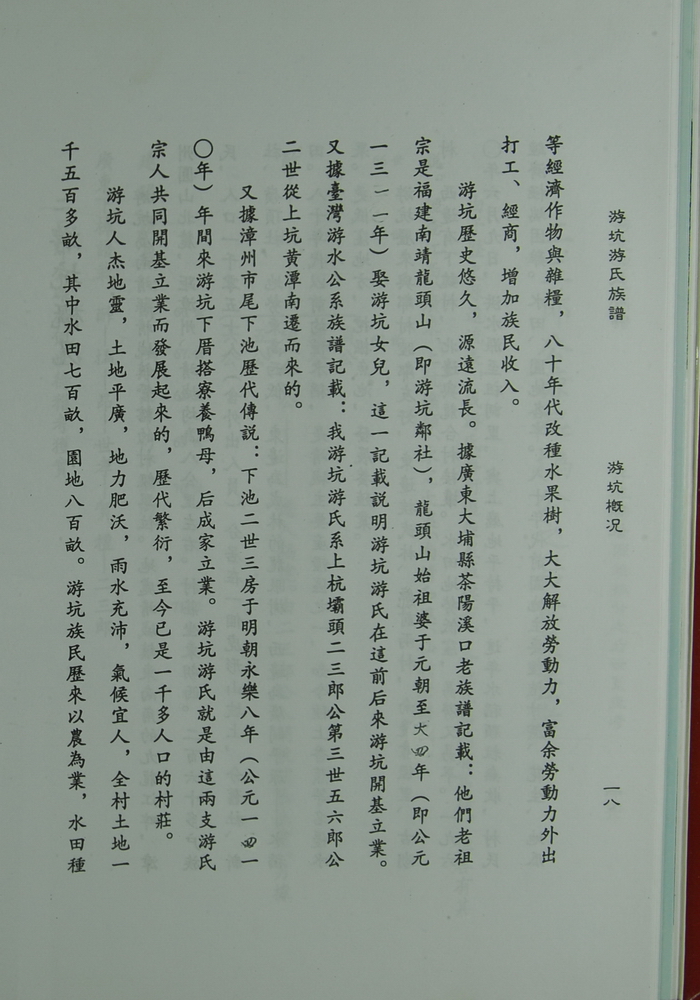 游坑游氏族譜　游坑概况　一八
等經濟作物與雜糧，八十年代改種水果樹，大大解放勞動力，富余勞動力外出
打工、經商，增加族民收入。
游坑歷史悠久，源遠流長。據廣東大埔縣茶陽溪口老族譜記載：他們老祖
宗是福建南靖龍頭山（即游坑鄰社），龍頭山始祖婆于元朝至大四年（即公元
一三一一年）娶游坑女兒，這一記載説明游坑游氏在這前后來游坑開基立業。
又據臺灣游水公系族譜記載：我游坑游氏系上杭壩頭二三郎公第三世五六郎公
二世從上坑黄潭南遷而來的。
又據漳州市尾下池歷代傳説：下池二世三房于明朝永樂八年（公元一四一
〇年）年間來游坑下厝搭寮養鴨母，后成家立業。游坑游氏就是由這兩支游氏
宗人共同開基立業而發展起來的，歷代繁衍，至今已是一千多人口的村莊。
游坑人杰地靈，土地平廣，地力肥沃，雨水充沛，氣候宜人，全村土地一
千五百多畝，其中水田七百畝，園地八百畝。游坑族民歷來以農為業，水田種